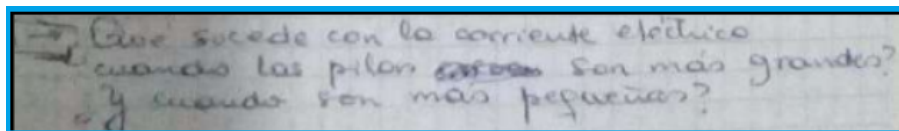 Que sucede con la corriente eléctrica
cuando las pilas son más grandes?
y cuando son más pequeñas?